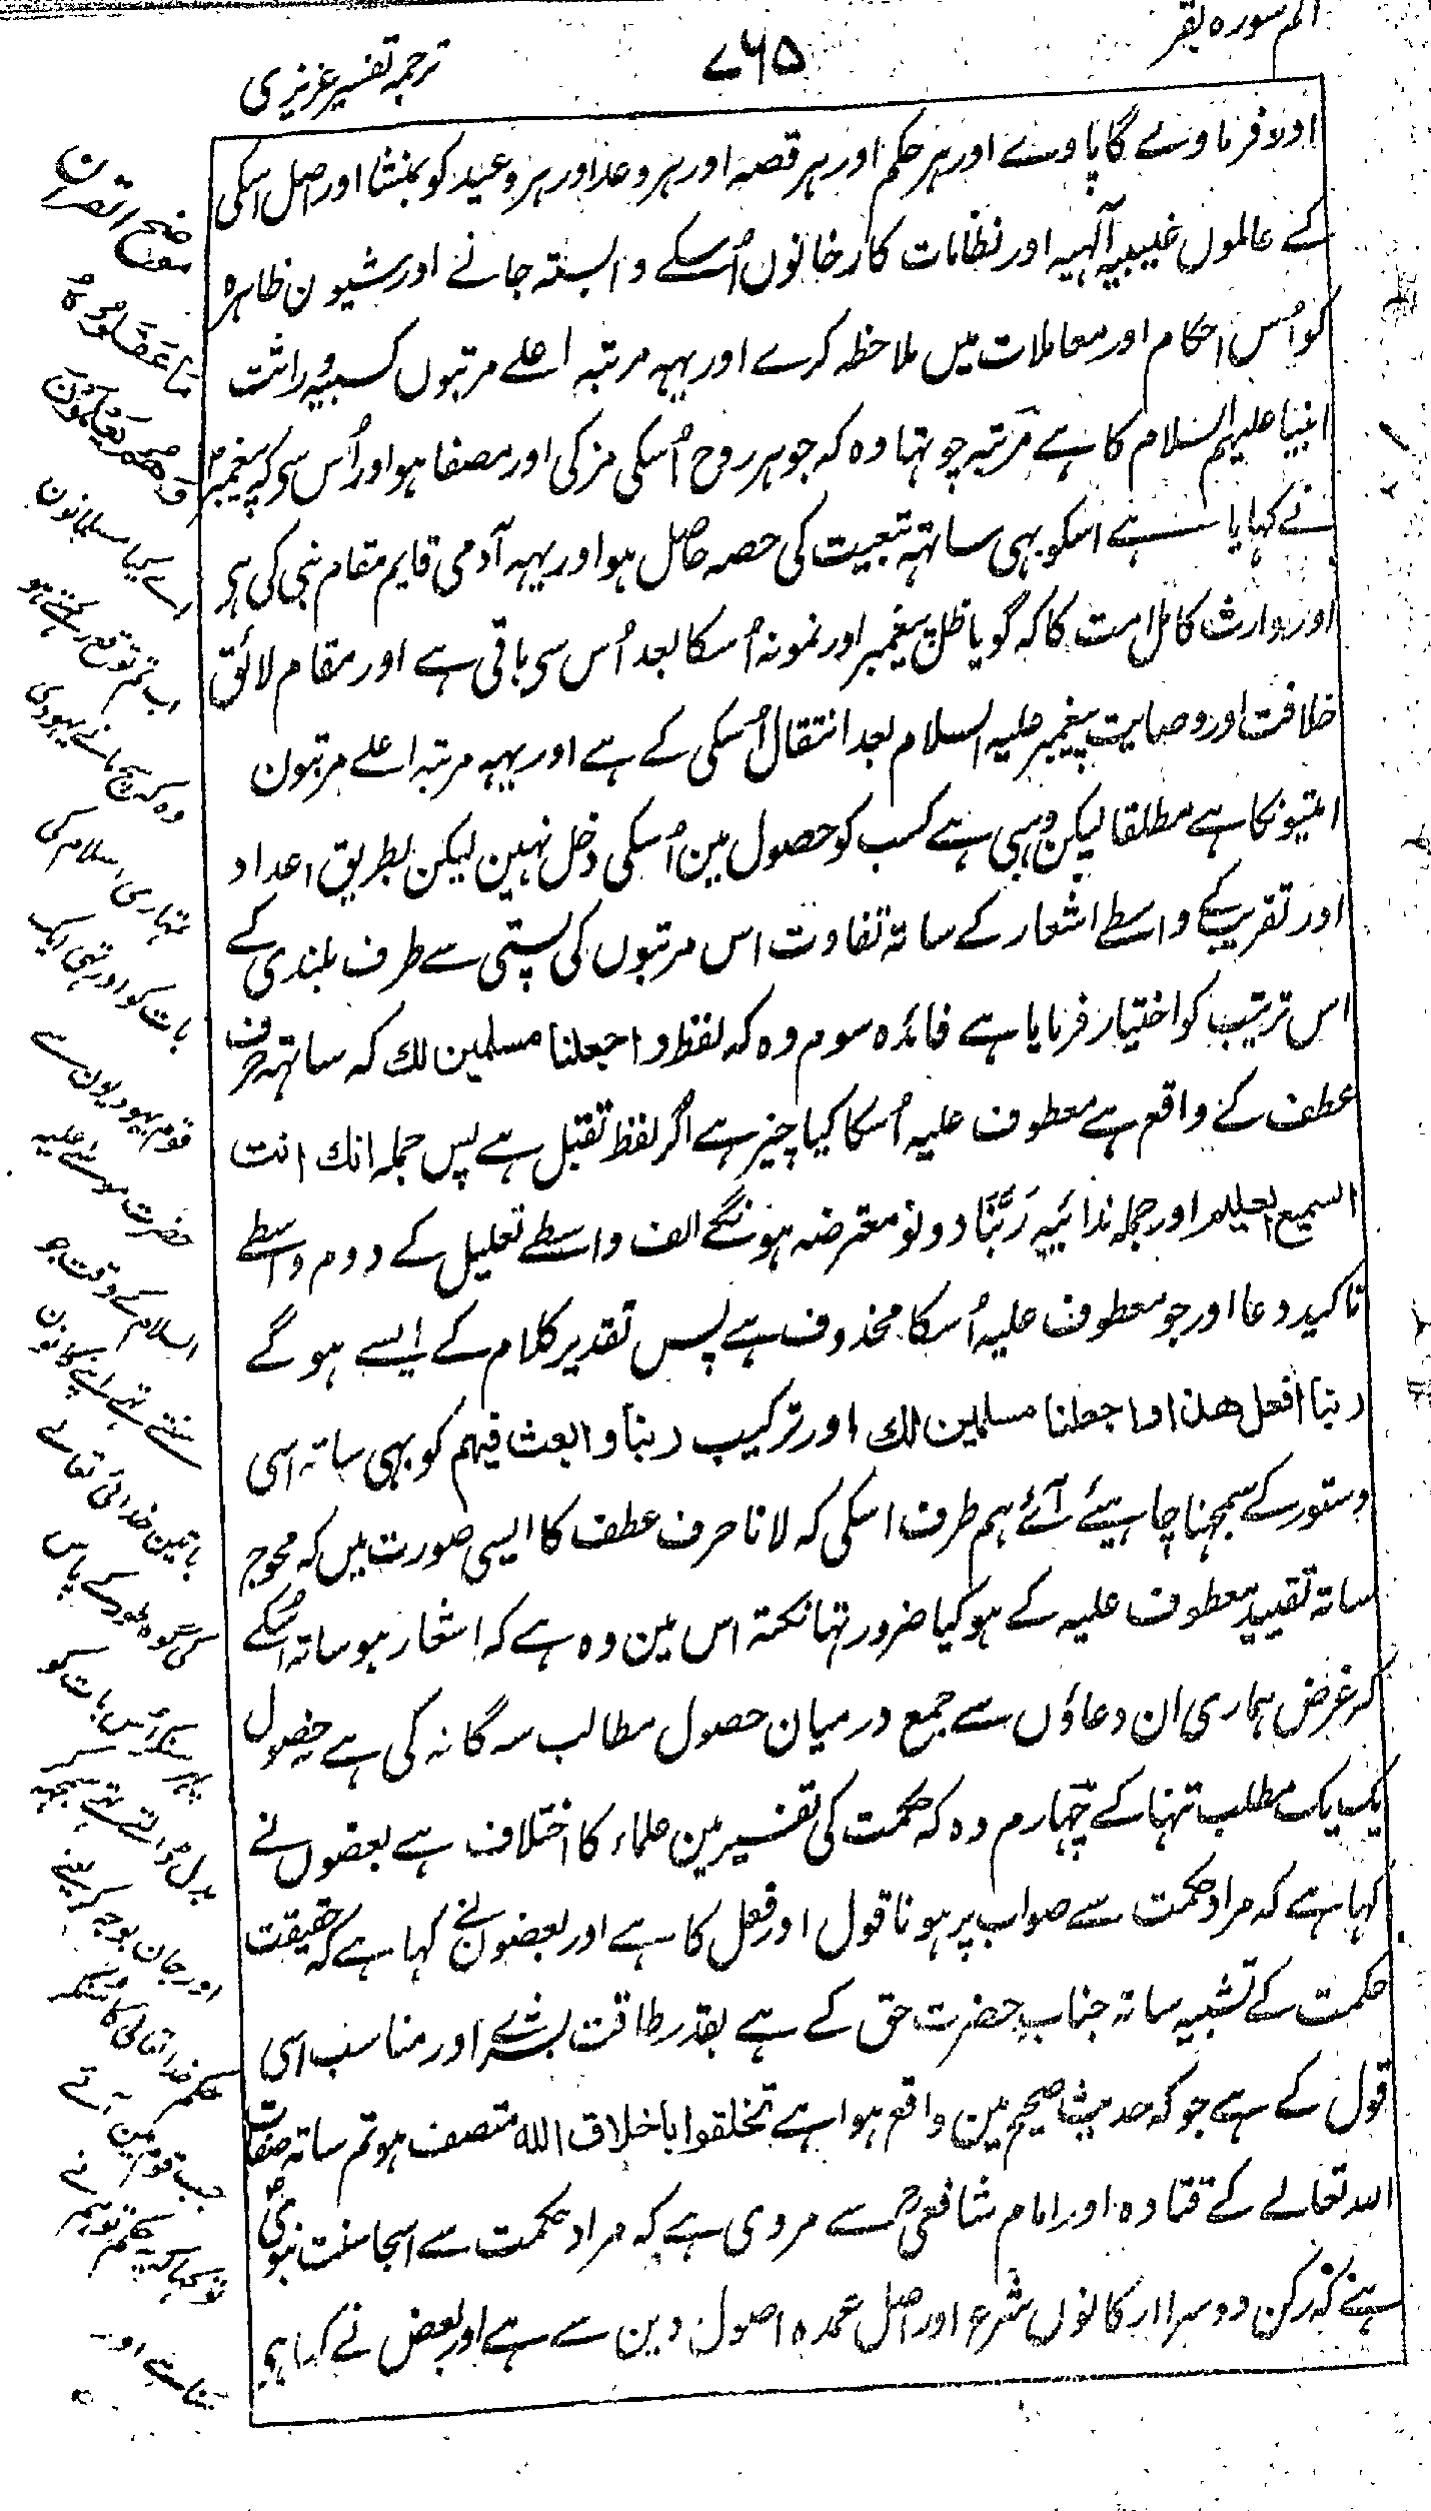 الم سورہ بقر
۷۶۵
ترجمہ تفسیر عزیزی
اور فرماوے گا پاوے اور ہر حکم اور ہر قصہ اور ہر وعد اور ہر وعید کو بمنشا اور اصل اسکی
کے عالموں غیبیہ آلہیہ اور نظامات کارخانوں اُسکے وابستہ جانے اور شیون ظاہرہ
کو اُس احکام اور معاملات میں ملاحظہ کرے اور یہہ مرتبہ اعلے مرتبوں کسبیہ وراثت
انبیا علیہم السلام کا ہے مرتبہ چوتہا وہ کہ جوہر روح اُسکی مزکی اور مصفا ہو اور اُس سی کہ پیغمبر
نے کہایا ہے اسکو بہی ساتہہ تبعیت کی حصہ حاصل ہو اور یہہ آدمی قایم مقام نبی کی ہی
اور وارث کامل امت کا کہ گویا ظل پیغمبر اور نمونہ اُسکا بعد اُس سی باقی ہے اور مقام لائق
خلافت اور وصایت پیغمبر علیہ السلام بعد انتقال اُسکی کے ہے اور یہہ مرتبہ اعلے مرتبون
امتیونکا ہے مطلقا لیکن وہبی ہے کسب کو حصول مین اُسکی دخل نہین لیکن بطریق اعداد
اور تقریب کے واسطے اشعار کے ساتہ تفاوت اس مرتبوں کی پستی سے طرف بلندی کے
اس ترتیب کو اختیار فرمایا ہے فائدہ سوم وہ کہ لفظ واجعلنا مسلمین لك کہ ساتہہ حرف
عطف کے واقع ہے معطوف علیہ اُسکا کیا چیز ہے اگر لفظ تقبل ہے پس جملہ انك انت
السمیع العلیم اور جملہ ندائیہ رَبَّنَا دونو معترضہ ہونگے الف واسطے تعلیل کے دوم واسطے
تاکید دعا اور جو معطوف علیہ اُسکا محذوف ہے پس تقدیر کلام کے ایسے ہوگے
ربنا افعل هذا واجعلنا مسلمین لك اور ترکیب ربنا وابعث فیہم کو بہی ساتہ اسی
دستور کے سمجہنا چاہیئے آئے ہم طرف اسکی کہ لانا حرف عطف کا ایسی صورت میں کہ محوج
ساتہ تقیید معطوف علیہ کے ہو کیا ضرور تہا نکتة اس مین وہ ہے کہ اشعار ہو ساتہ اسکے
کہ غرض ہماری ان دعاؤں سے جمع درمیان حصول مطالب سہ گانہ کی ہے نہ حصول
یک یک مطلب تنہا کے چہارم وہ کہ حکمت کی تفسیر مین علماء کا اختلاف ہے بعضوں نے
کہا ہے کہ مراد حکمت سے صواب پر ہونا قول اور فعل کا ہے اور بعضوں نے کہا ہے کہ حقیقت
حکمت کے تشبیہ ساتہ جناب حضرت حق کے ہے بقدر طاقت بشرے اور مناسب اسی
قول کے ہے جو کہ حدیث صحیح مین واقع ہوا ہے تخلقوا باخلاق الله متصف ہو تم ساتہ صفات
اللہ تعالے کے قتادہ اور امام شافعی رح سے مروی ہے کہ مراد حکمت سے اسجا سنت نبوی
ہے کہ رکن دوسرا ارکانوں شرع اور اصل عمدہ اصول دین سے ہے اور بعض نے کہا ہی
موضح القرآن
مَا عَقَلُوهُ
وَهُمْ يَعْلَمُونَ
اے مسلمانون
اب تم توقع رکہتے ہو
وہ کہ یہودی
تمہاری اسلام کی
بات کو اور تہی ایک
قوم یہودیون سے
حضرت علیہ
السلام کے وقت جو
سنتے تہے اپنے
باتین خدائی تعالے
کی کوہ طور کے پاس
اُس بات کو
بدل
اور جان بوجہ کر
خدا تعالی کا
حکم
جب قوم مین آتے
تو کہا کہ یہ حکم